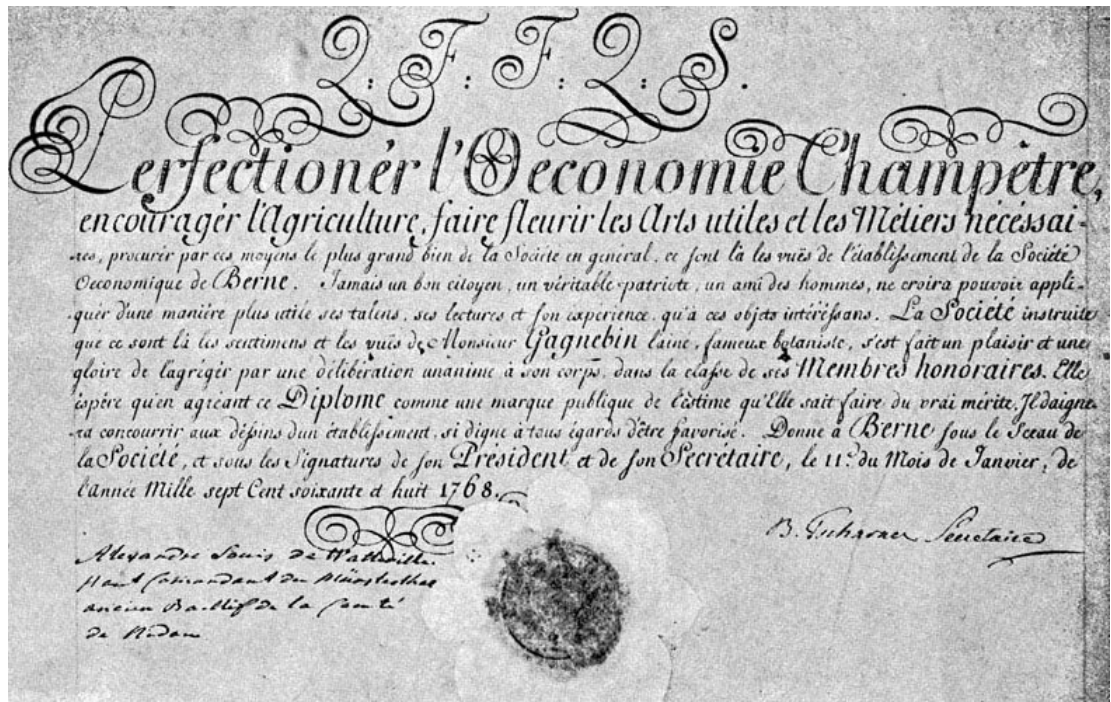 Q: F: F: Q: S.
Perfectionér l'Oeconomie Champètre,
encouragér l'Agriculture, faire fleurir les Arts utiles et les Métiers nécéssai-
-res, procurér par ces moyens le plus grand bien de la Societé en general, ce sont là les vuës de l'établissement de la Societé
Oeconomique de Berne. Jamais un bon citoyen, un véritable patriote, un ami des hommes, ne croira pouvoir appli-
quér d'une manière plus utile ses talens, ses lectures et son experience, qu'à ces objets intéréssans. La Société instruite
que ce sont là les sentimens et les vuës de Monsieur Gagnebin laine, fameux botaniste, s'est fait un plaisir et une
gloire de l'agrégér par une déliberation unanime à son corps, dans la classe de ses Membres honoraires. Elle
espère qu'en agréant ce Diplome comme une marque publique de l'estime qu'Elle sait faire du vrai mérite, Il daigne-
-ra concourrir aux dessins d'un établissement, si digne à tous égards d'être favorisé. Donné à Berne sous le Sceau de
la Société, et sous les Signatures de son President et de son Secrétaire, le 11.e du Mois de Janvier, de
l'année Mille sept Cent soixante et huit 1768.
B. Tscharner Secretaire
Alexandre Louis de Watteville
haut Comandant du Münsterthal
ancien Baillif de la Comté
de Nidau